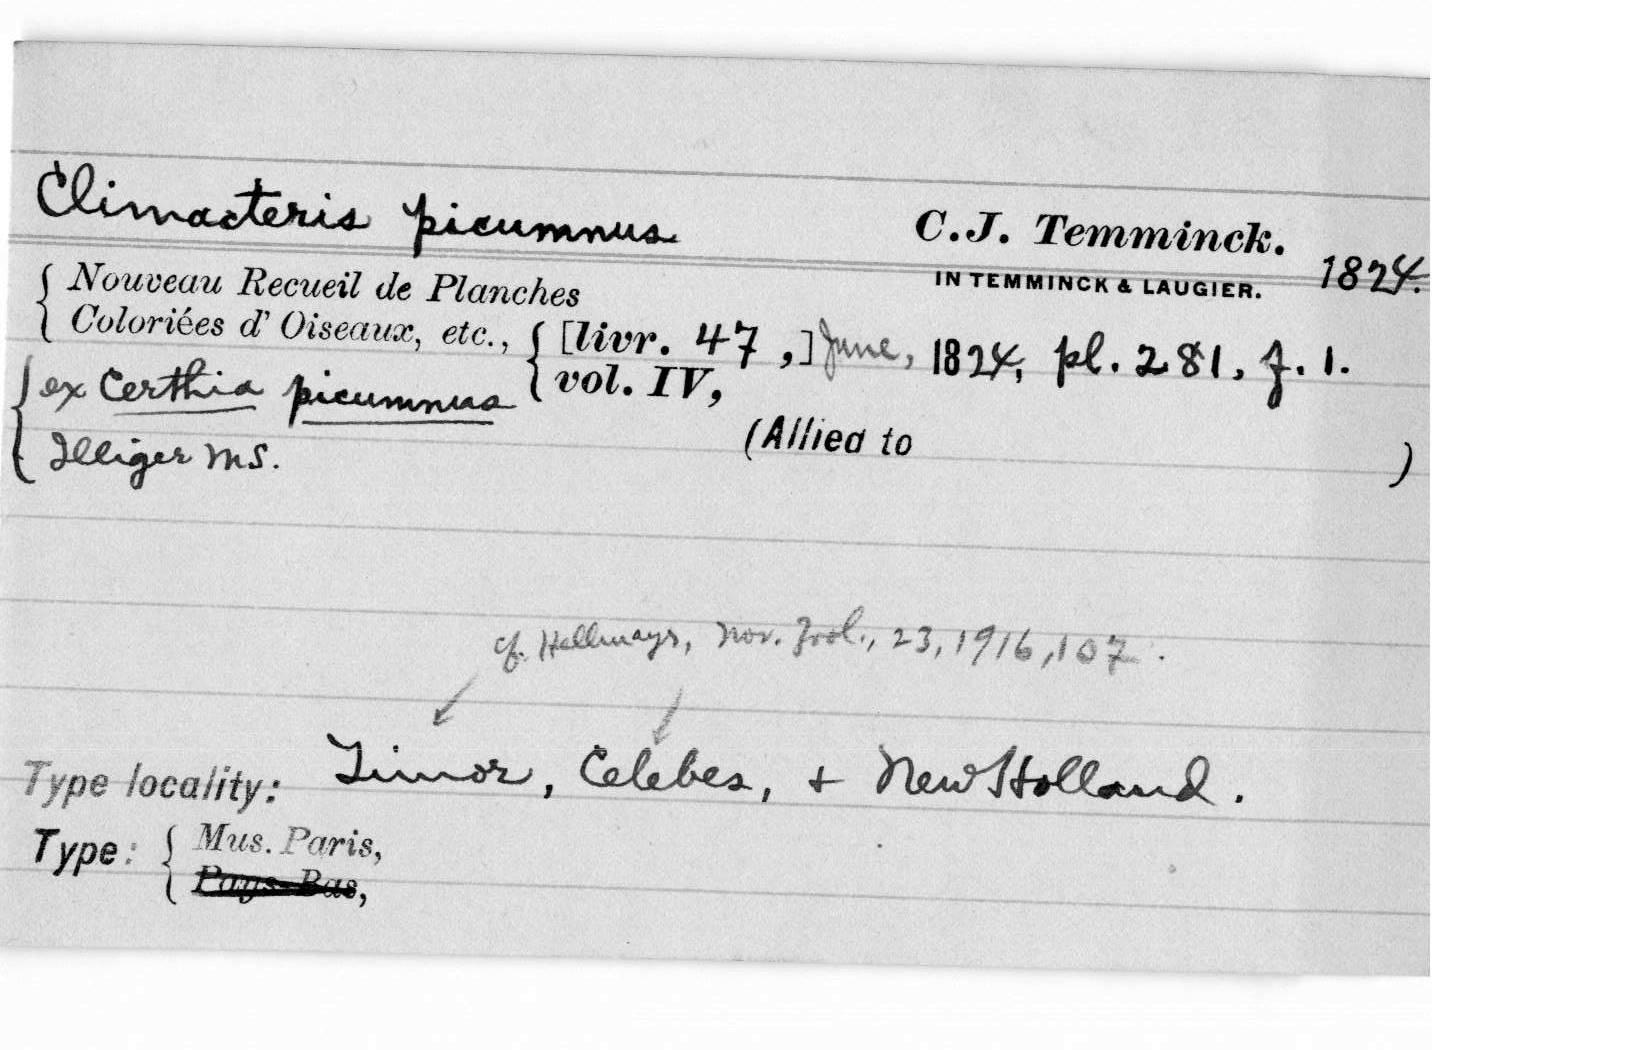 Climacteris picumnus C.J. Temminck.
IN TEMMINCK & LAUGIER. 1824.
{ Nouveau Recueil de Planches
Coloriées d' Oiseaux, etc., { [livr. 47 ,] June, 1824, pl. 281, f. 1.
vol. IV,
{ ex Certhia picumnus
Illiger MS.
(Allied to )
cf. Hellmayr, Nov. Zool., 23, 1916, 107.
Type locality: Timor, Celebes, + New Holland.
Type: { Mus. Paris,
Pays-Bas,